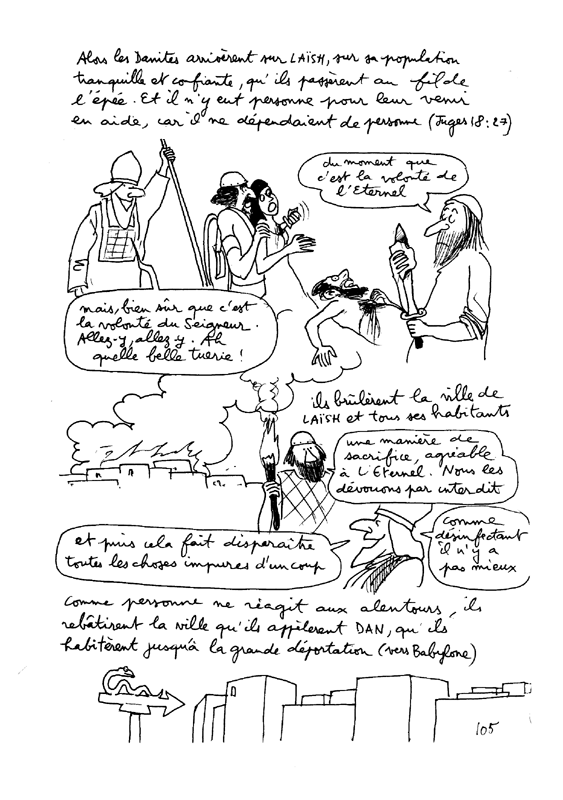 Alors les Danites arrivèrent sur LAÏSH, sur sa population
tranquille et confiante, qu'ils passèrent au fil de
l'épée. Et il n'y eut personne pour leur venir
en aide, car il ne dépendaient de personne (Juges 18:27)
du moment que
c'est la volonté de
l'Eternel
mais, bien sûr que c'est
la volonté du Seigneur.
Allez-y, allez-y. Ah
quelle belle tuerie !
ils brûlèrent la ville de
LAÏSH et tous ses habitants
une manière de
sacrifice, agréable
à l'Eternel. Nous les
dévouons par interdit
et puis cela fait disparaître
toutes les choses impures d'un coup
comme
désinfectant
il n'y a
pas mieux
comme personne ne réagit aux alentours, ils
rebâtirent la ville qu'ils appèlerent DAN, qu'ils
habitèrent jusqu'à la grande déportation (vers Babylone)
105